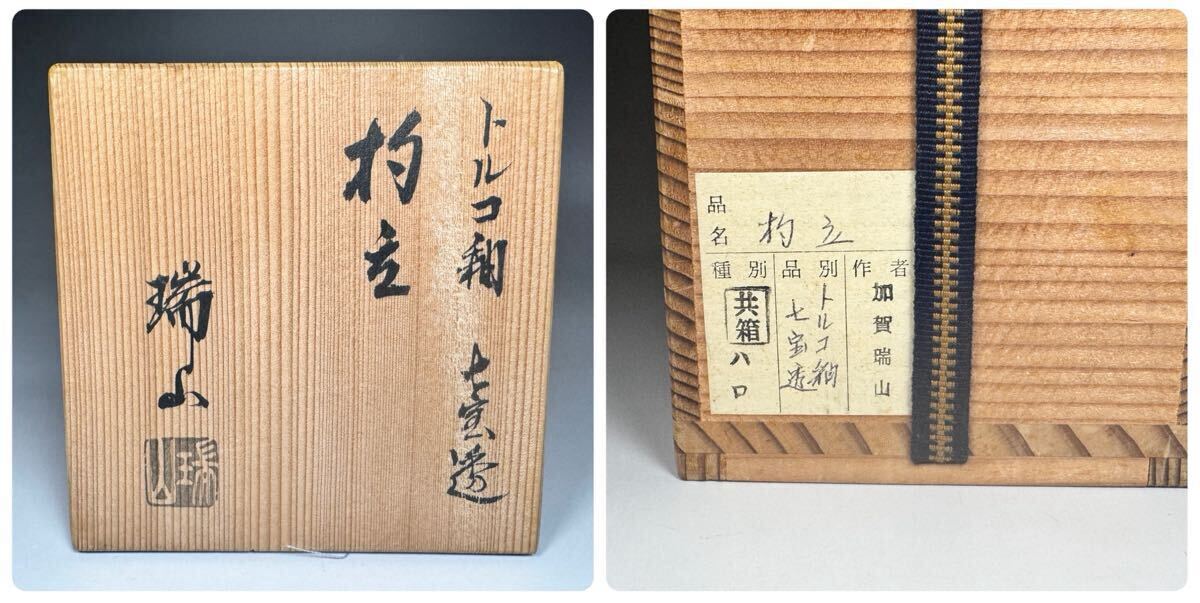 トルコ釉 七宝透
杓立
瑞山
瑞山
品名
杓立
種別
共箱
ハコ
品別
トルコ釉
七宝透
作者
加賀瑞山